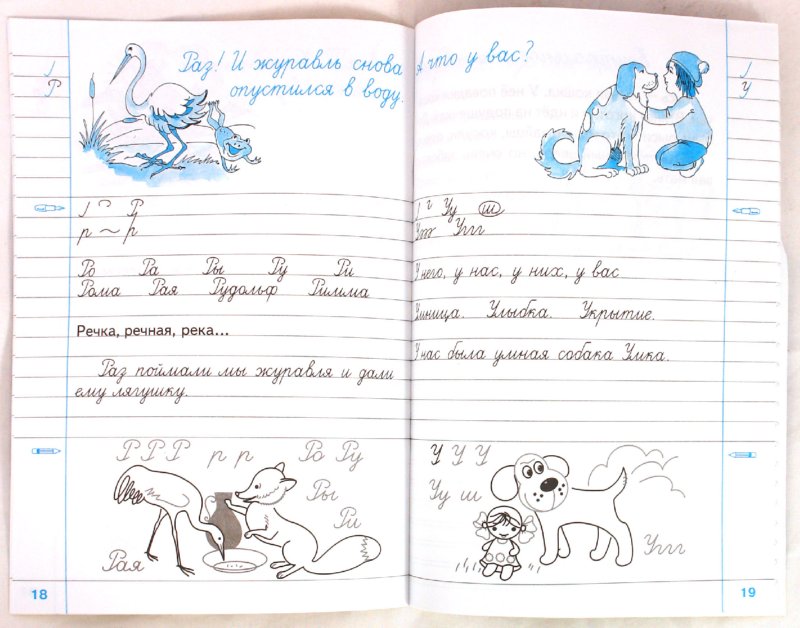 Раз! И журавль снова
опустился в воду.
Р
р р
Ро Ра Ры Ру Ри
Рома Рая Рудольф Римма
Речка, речная, река...
Раз поймали мы журавля и дали
ему лягушку.
Р Р Р р р Ро Ру
Ры
Ри
Рая
18
А что у вас?
У
Уу ш
У него, у нас, у них, у вас
Умница. Улыбка. Укрытие.
У нас была умная собака Умка.
У У У
Уу ш
19